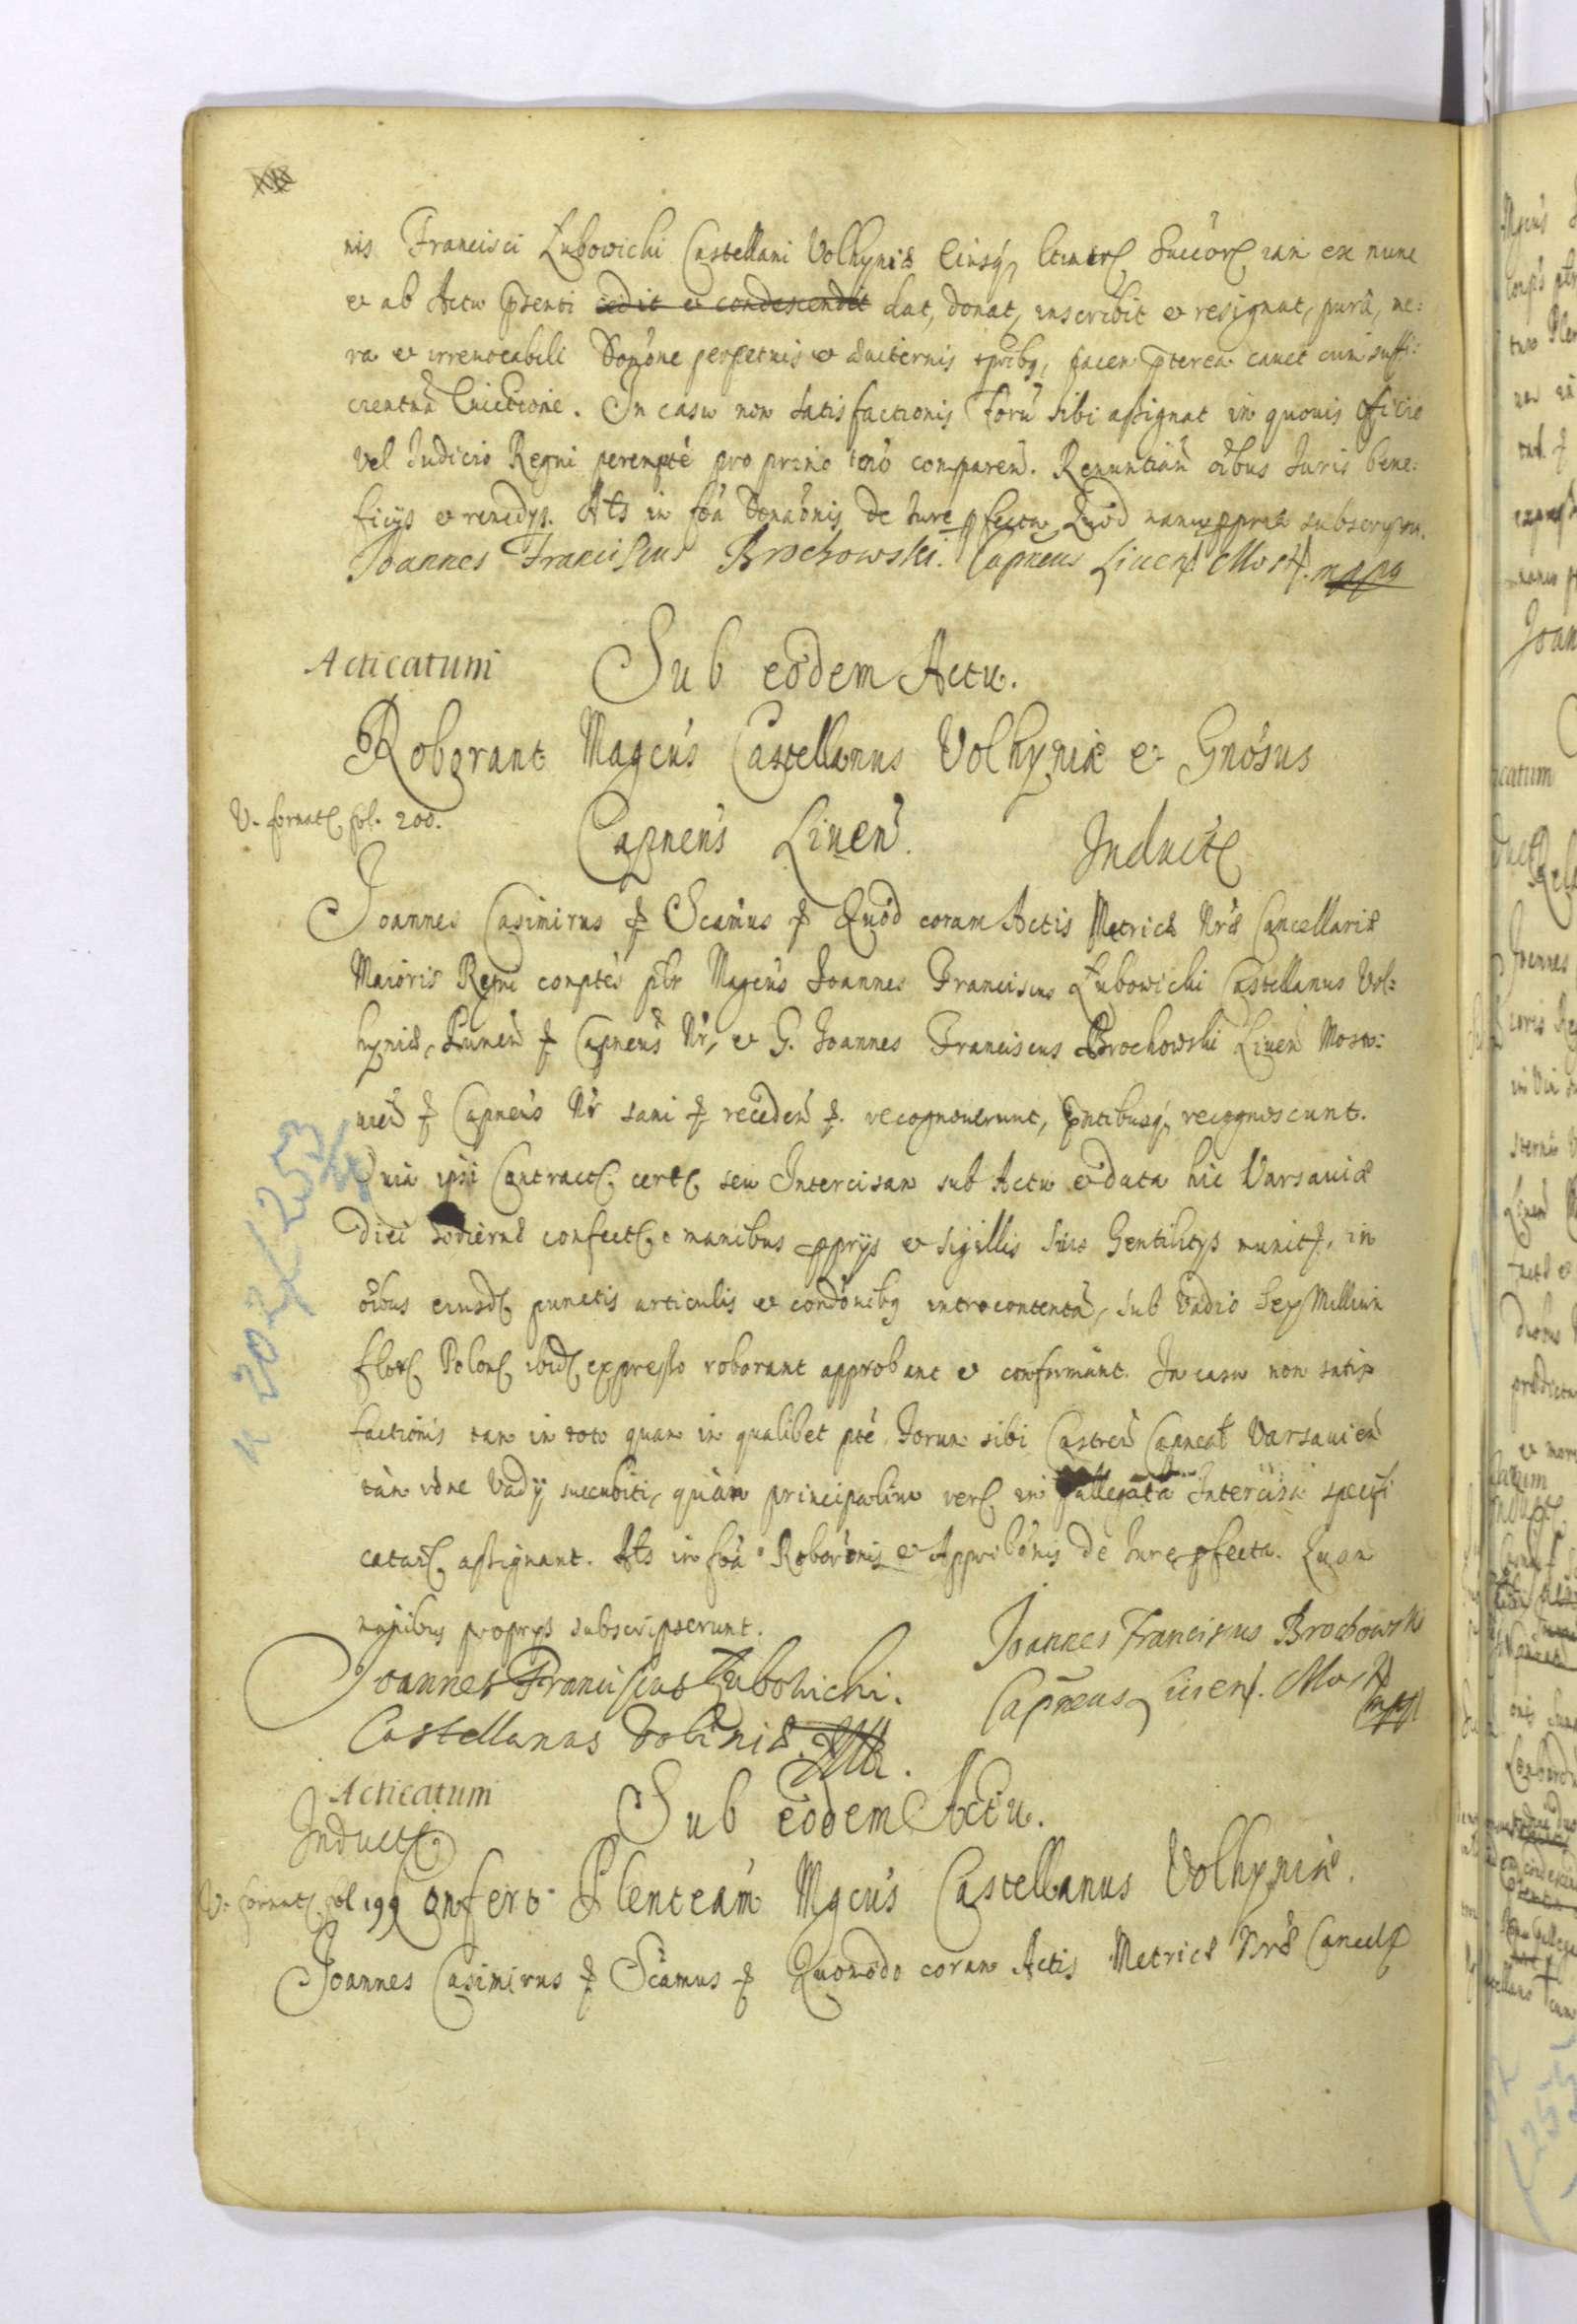 nis Francisci Lubowicki Castellani Volhyniæ Eiusq, ltimor Succor iam ex nunc
et ab Actu pnti cedit et condescendit dat, donat, inscribit et resignat, pura, me:
ra et irreuocabili Donone perpetuis et æuiternis tpribq, pacem pterea cauet cum suffi:
cienti Euictione. In casu non satisfactionis Foru sibi assignat in quouis Officio
vel Iudicio Regni perempte pro primo tno comparen. Renuntian oibus Iuris bene:
ficijs et remedys. Ats in foa Donaonis de Iure pfecta Quod manu ppria subscripsit.
Joannes Franciscus Brochowski. Capneus Liuen Most mppa
Acticatum Sub eodem Actu.
Roborant Magcus Castellanus Volhyniæ et Gnosus
V. format fol. 200. Capneus Liuen. Induct
Joannes Casimirus Scamus Quod coram Actis Metricæ Nræ Cancellariæ
Maioris Regni comptes plr Magcus Ioannes Franciscus Lubowicki Castellanus Vol:
hyniæ, Capneus Nr, et G. Ioannes Franciscus Brochowski Liuen Mosti:
cien Capneus Nr sani receden recognouerunt, pntibusq recognoscunt.
Quia ipsi Contract cert seu Intercisam sub Actu et data hic Varsauiæ
diei hodiernæ confect manibus pprijs et sigillis suis Gentilitys munit, in
oibus eiusd punctis articulis et condonibq introcontenta, sub Vadio Sex Millium
flor Polon ibid expresso roborant approbant et confirmant. In casu non satis
factionis tam in toto quam in qualibet pte Forum sibi Castren Capneat Varsauien
tam rone Vady succubiti, quam principalium ver in pallegata Intercisa specifi
catar assignant. Ats in foa Roboronis et Approbonis de Iure pfecta. Quam
manibus proprys subscripserunt.
Joannes Franciscus Brochowski
Joannes Franciscus Lubowicki.
Capneus Liuen. Most mppa
Castellanus Voliniæ
Acticatum Sub eodem Actu.
Induct
V. format fol 199 Confert Plenteam Mgcus Castellanus Volhyniæ.
Joannes Casimirus Scamus Quomodo coram Actis Metricæ Nræ Cancell